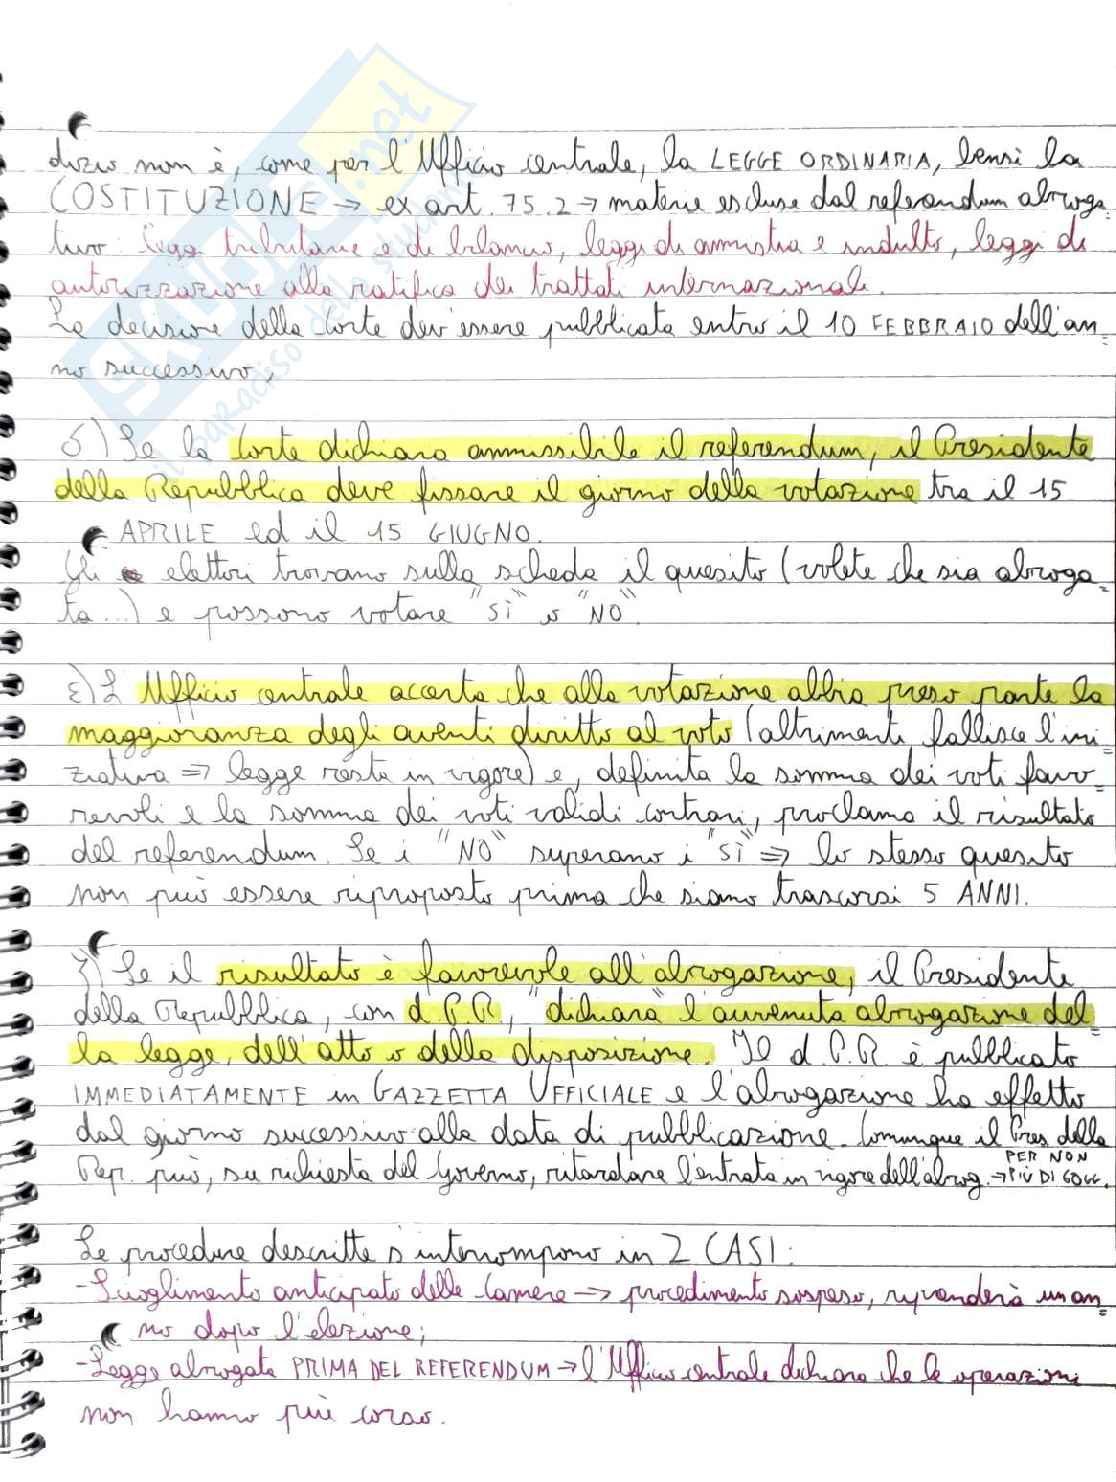 dizio non è, come per l'Ufficio centrale, la LEGGE ORDINARIA, bensì la
COSTITUZIONE → ex art. 75.2 → materie escluse dal referendum abroga=
tivo: leggi tributarie e di bilancio, leggi di amnistia e indulto, leggi di
autorizzazione alla ratifica dei trattati internazionali.
La decisione della Corte dev'essere pubblicata entro il 10 FEBBRAIO dell'an=
no successivo;
δ) Se la Corte dichiara ammissibile il referendum, il Presidente
della Repubblica deve fissare il giorno della votazione tra il 15
APRILE ed il 15 GIUGNO.
Gli elettori trovano sulla scheda il quesito (volete che sia abroga=
ta...) e possono votare "SÌ" o "NO".
ε) L'Ufficio centrale accerta che alla votazione abbia preso parte la
maggioranza degli aventi diritto al voto (altrimenti fallisce l'ini=
ziativa ⇒ legge resta in vigore) e, definita la somma dei voti favo=
revoli e la somma dei voti validi contrari, proclama il risultato
del referendum. Se i "NO" superano i "SÌ" ⇒ lo stesso quesito
non può essere riproposto prima che siano trascorsi 5 ANNI.
ζ) Se il risultato è favorevole all'abrogazione, il Presidente
della Repubblica, con d.P.R., "dichiara" l'avvenuta abrogazione del=
la legge, dell'atto o della disposizione. Il d.P.R. è pubblicato
IMMEDIATAMENTE in GAZZETTA UFFICIALE e l'abrogazione ha effetto
dal giorno successivo alla data di pubblicazione. Comunque il Pres. della
Rep. può, su richiesta del Governo, ritardare l'entrata in vigore dell'abrog. → PER NON PIÙ DI 60GG.
Le procedure descritte s'interrompono in 2 CASI:
-Scioglimento anticipato delle Camere → procedimento sospeso, riprenderà un an=
no dopo l'elezione;
-Legge abrogata PRIMA DEL REFERENDUM → l'Ufficio centrale dichiara che le operazioni
non hanno più corso.
SKUOLA.net
il paradiso dello studente